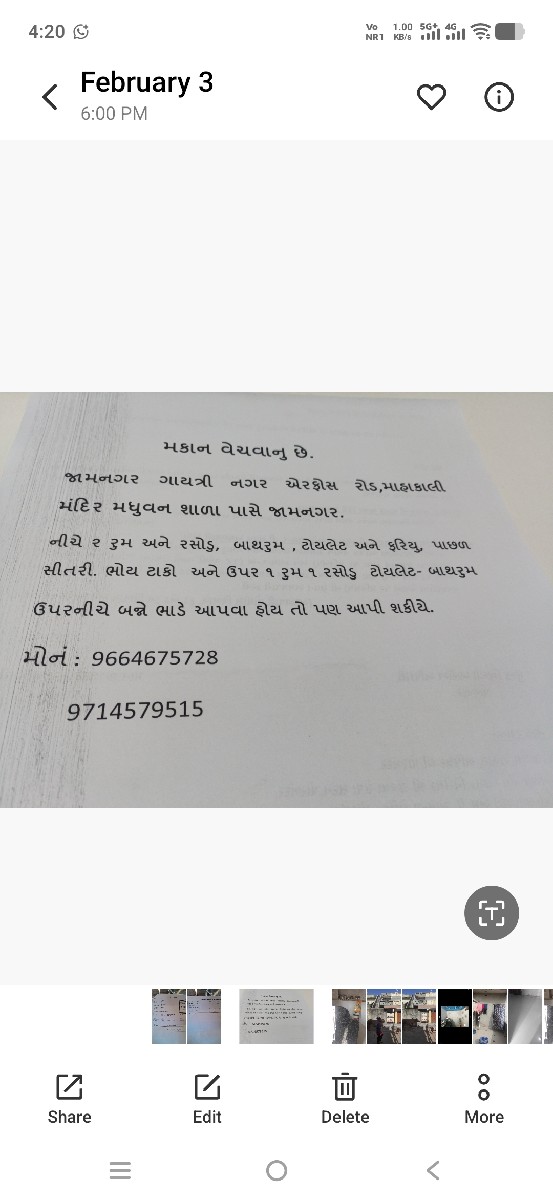 4:20
Vo NR1 1.00 KB/s 5G+ 4G
February 3
6:00 PM
મકાન વેચવાનુ છે.
જામનગર ગાયત્રી નગર એરફોસ રોડ,માહાકાલી
મંદિર મધુવન શાળા પાસે જામનગર.
નીચે ૨ રુમ અને રસોડુ, બાથરુમ , ટોયલેટ અને ફરિયુ, પાછળ
સીતરી. ભોય ટાકો અને ઉપર ૧ રુમ ૧ રસોડુ ટોયલેટ- બાથરુમ
ઉપરનીચે બન્ને ભાડે આપવા હોય તો પણ આપી શકીયે.
મોનં : 9664675728
9714579515
Share Edit Delete More